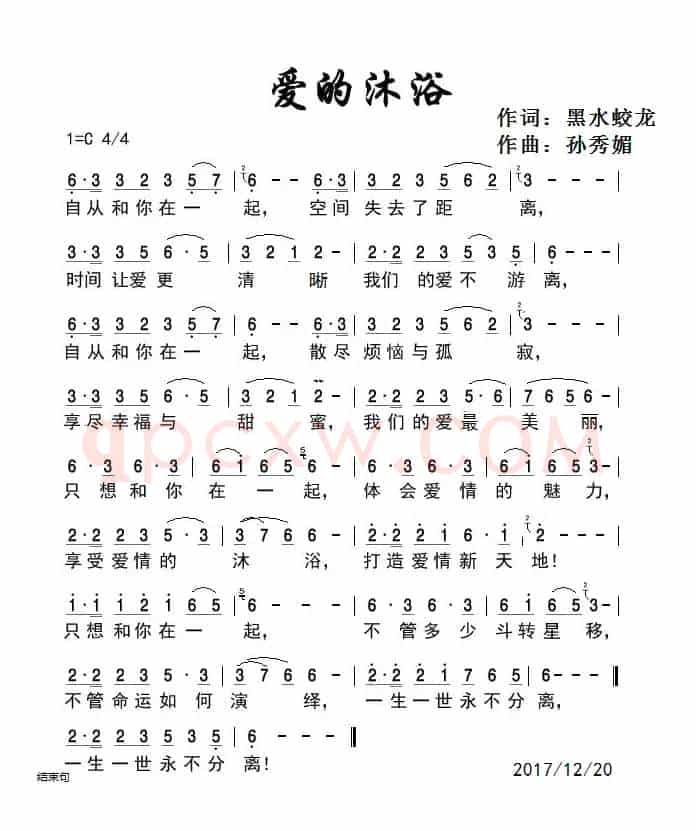 爱的沐浴
作词：黑水蛟龙
1=C 4/4
作曲：孙秀媚
6·3 3 2 3 5 7 | 6 - - 6·3 | 3 2 3 5 6 2 | 3 - - |
自从和你在一 起，空间 失去了距 离，
3·3 3 5 6·5 | 3 2 1 2 - | 2·2 2 3 5 3 5 | 6 - - - |
时间让爱更 清 晰 我们 的爱不 游离，
6·3 3 2 3 5 7 | 6 - - 6·3 | 3 2 3 5 6 2 | 3 - - - |
自从和你在一 起，散尽 烦恼与孤 寂，
3·3 3 5 6·5 | 3 2 1 2 - | 2·2 2 3 5·6 | 7 6 5 6 - |
享尽幸福与 甜 蜜，我们的爱最 美 丽，
qpcxw.com
6·3 6·3 | 6 1 6 5 6 - | 6·1 6 1 6 5 3 - |
只想和你在一起，体会爱情的魅力，
2·2 2 3 5·3 | 3 7 6 6 - | 2·2 2 1 7 6 1 | 2 - - |
享受爱情的 沐 浴，打造爱情新天地！
1·1 1 2 1 6 5 | 6 - - | 6 3 6 1 6 5 3 - |
只想和你在一 起， 不管多少斗转星移，
2·2 2 3 5·3 | 3 7 6 6 - | 2·2 2 1 7 6 5 | 6 - - - ‖
不管命运如何演 绎，一生一世永不分 离，
2·2 2 3 5 3 5 | 6 - - - ‖
一生一世永不分 离！
结束句
2017/12/20